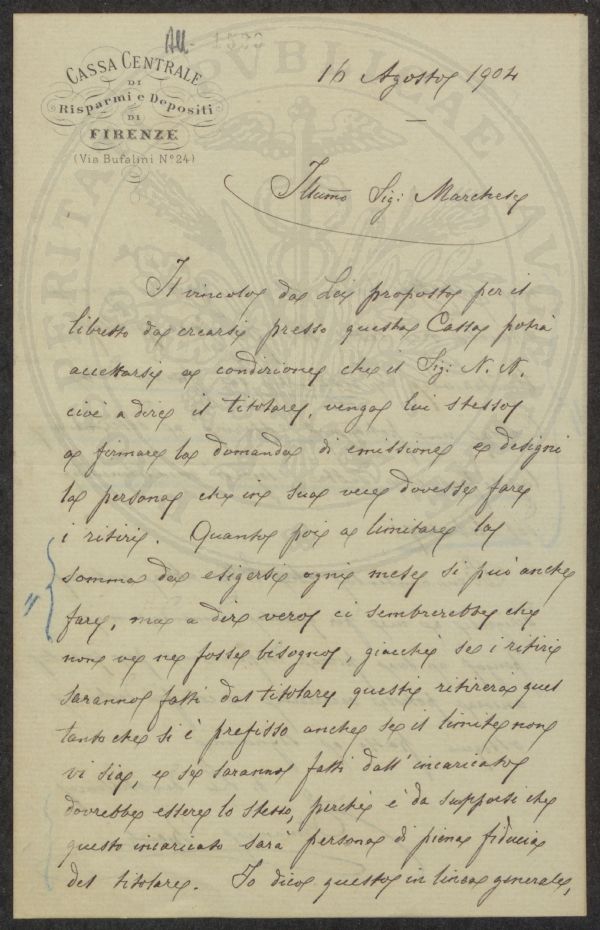 All.
CASSA CENTRALE
DI
Risparmi e Depositi
DI
FIRENZE
(Via Bufalini N.º 24)
16 Agosto 1904
Illumo Sig: Marchese
Il vincolo da Lei proposto per il
libretto da crearsi presso questa Cassa potrà
accettarsi a condizione che il Sig: N. N.
cioè a dire il titolare, venga lui stesso
a firmare la domanda di emissione e designi
la persona che in sua vece dovesse fare
i ritiri. Quanto poi a limitare la
somma da esigersi ogni mese si può anche
fare, ma a dir vero ci sembrerebbe che
non ve ne fosse bisogno, giacchè se i ritiri
saranno fatti dal titolare questi ritirerà quel
tanto che si è prefisso anche se il limite non
vi sia, e se saranno fatti dall'incaricato
dovrebbe essere lo stesso, perchè è da supporsi che
questo incaricato sarà persona di piena fiducia
del titolare. Io dico questo in linea generale,